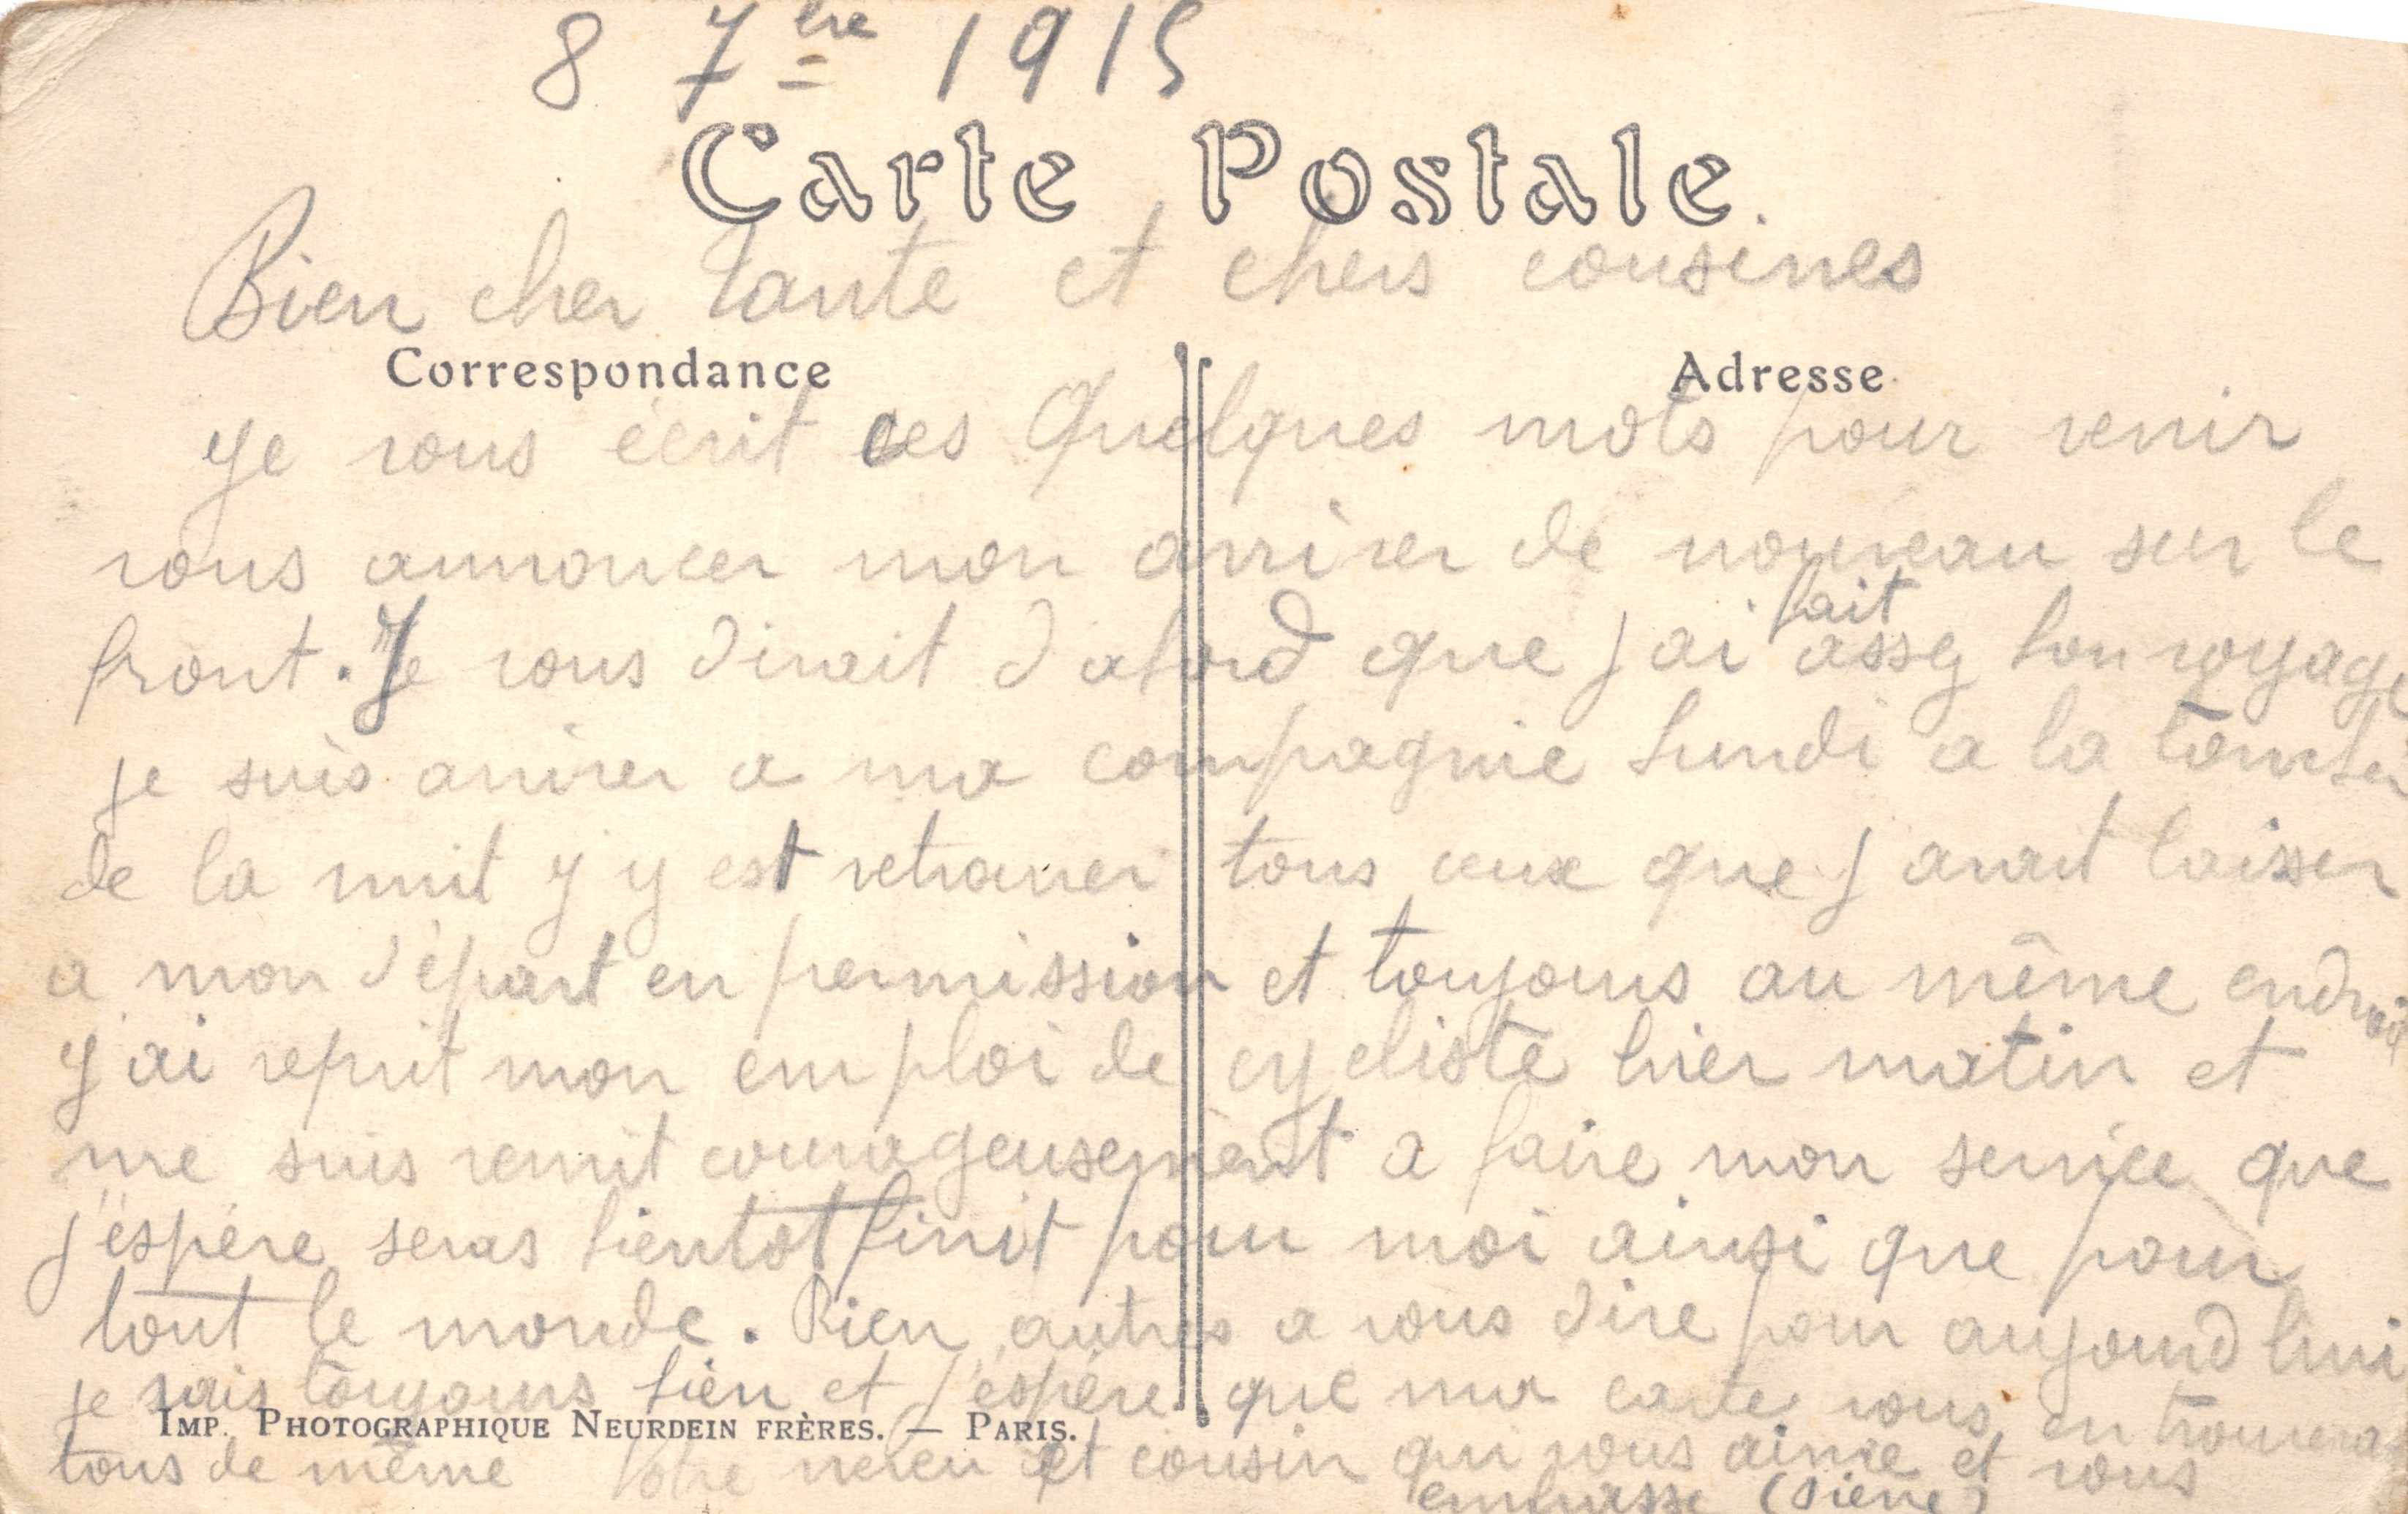 8 7bre 1915
Carte Postale.
Bien cher tante et chers cousines
Correspondance
Adresse
Je vous écrit ces Quelques mots pour venir
vous annoncer mon arriver de nouveau sur le
front. Je vous dirait d'abord que j'ai fait assez bon voyage
je suis arriver a ma compagnie lundi a la tomber
de la nuit j y est retrouver tous ceux que j avait laisser
a mon départ en permission et toujours au même endroit
j'ai reprit mon emploi de cycliste hier matin et
me suis remit courageusement a faire mon service que
j'éspére seras bientot finit pour moi ainsi que pour
tout le monde. Rien autres a vous dire pour aujourd hui
je vais toujours bien et j'éspére que ma carte vous en trouvera
Imp. Photographique Neurdein frères. — Paris.
tous de même Votre neveu et cousin qui vous aime et vous
embrasse